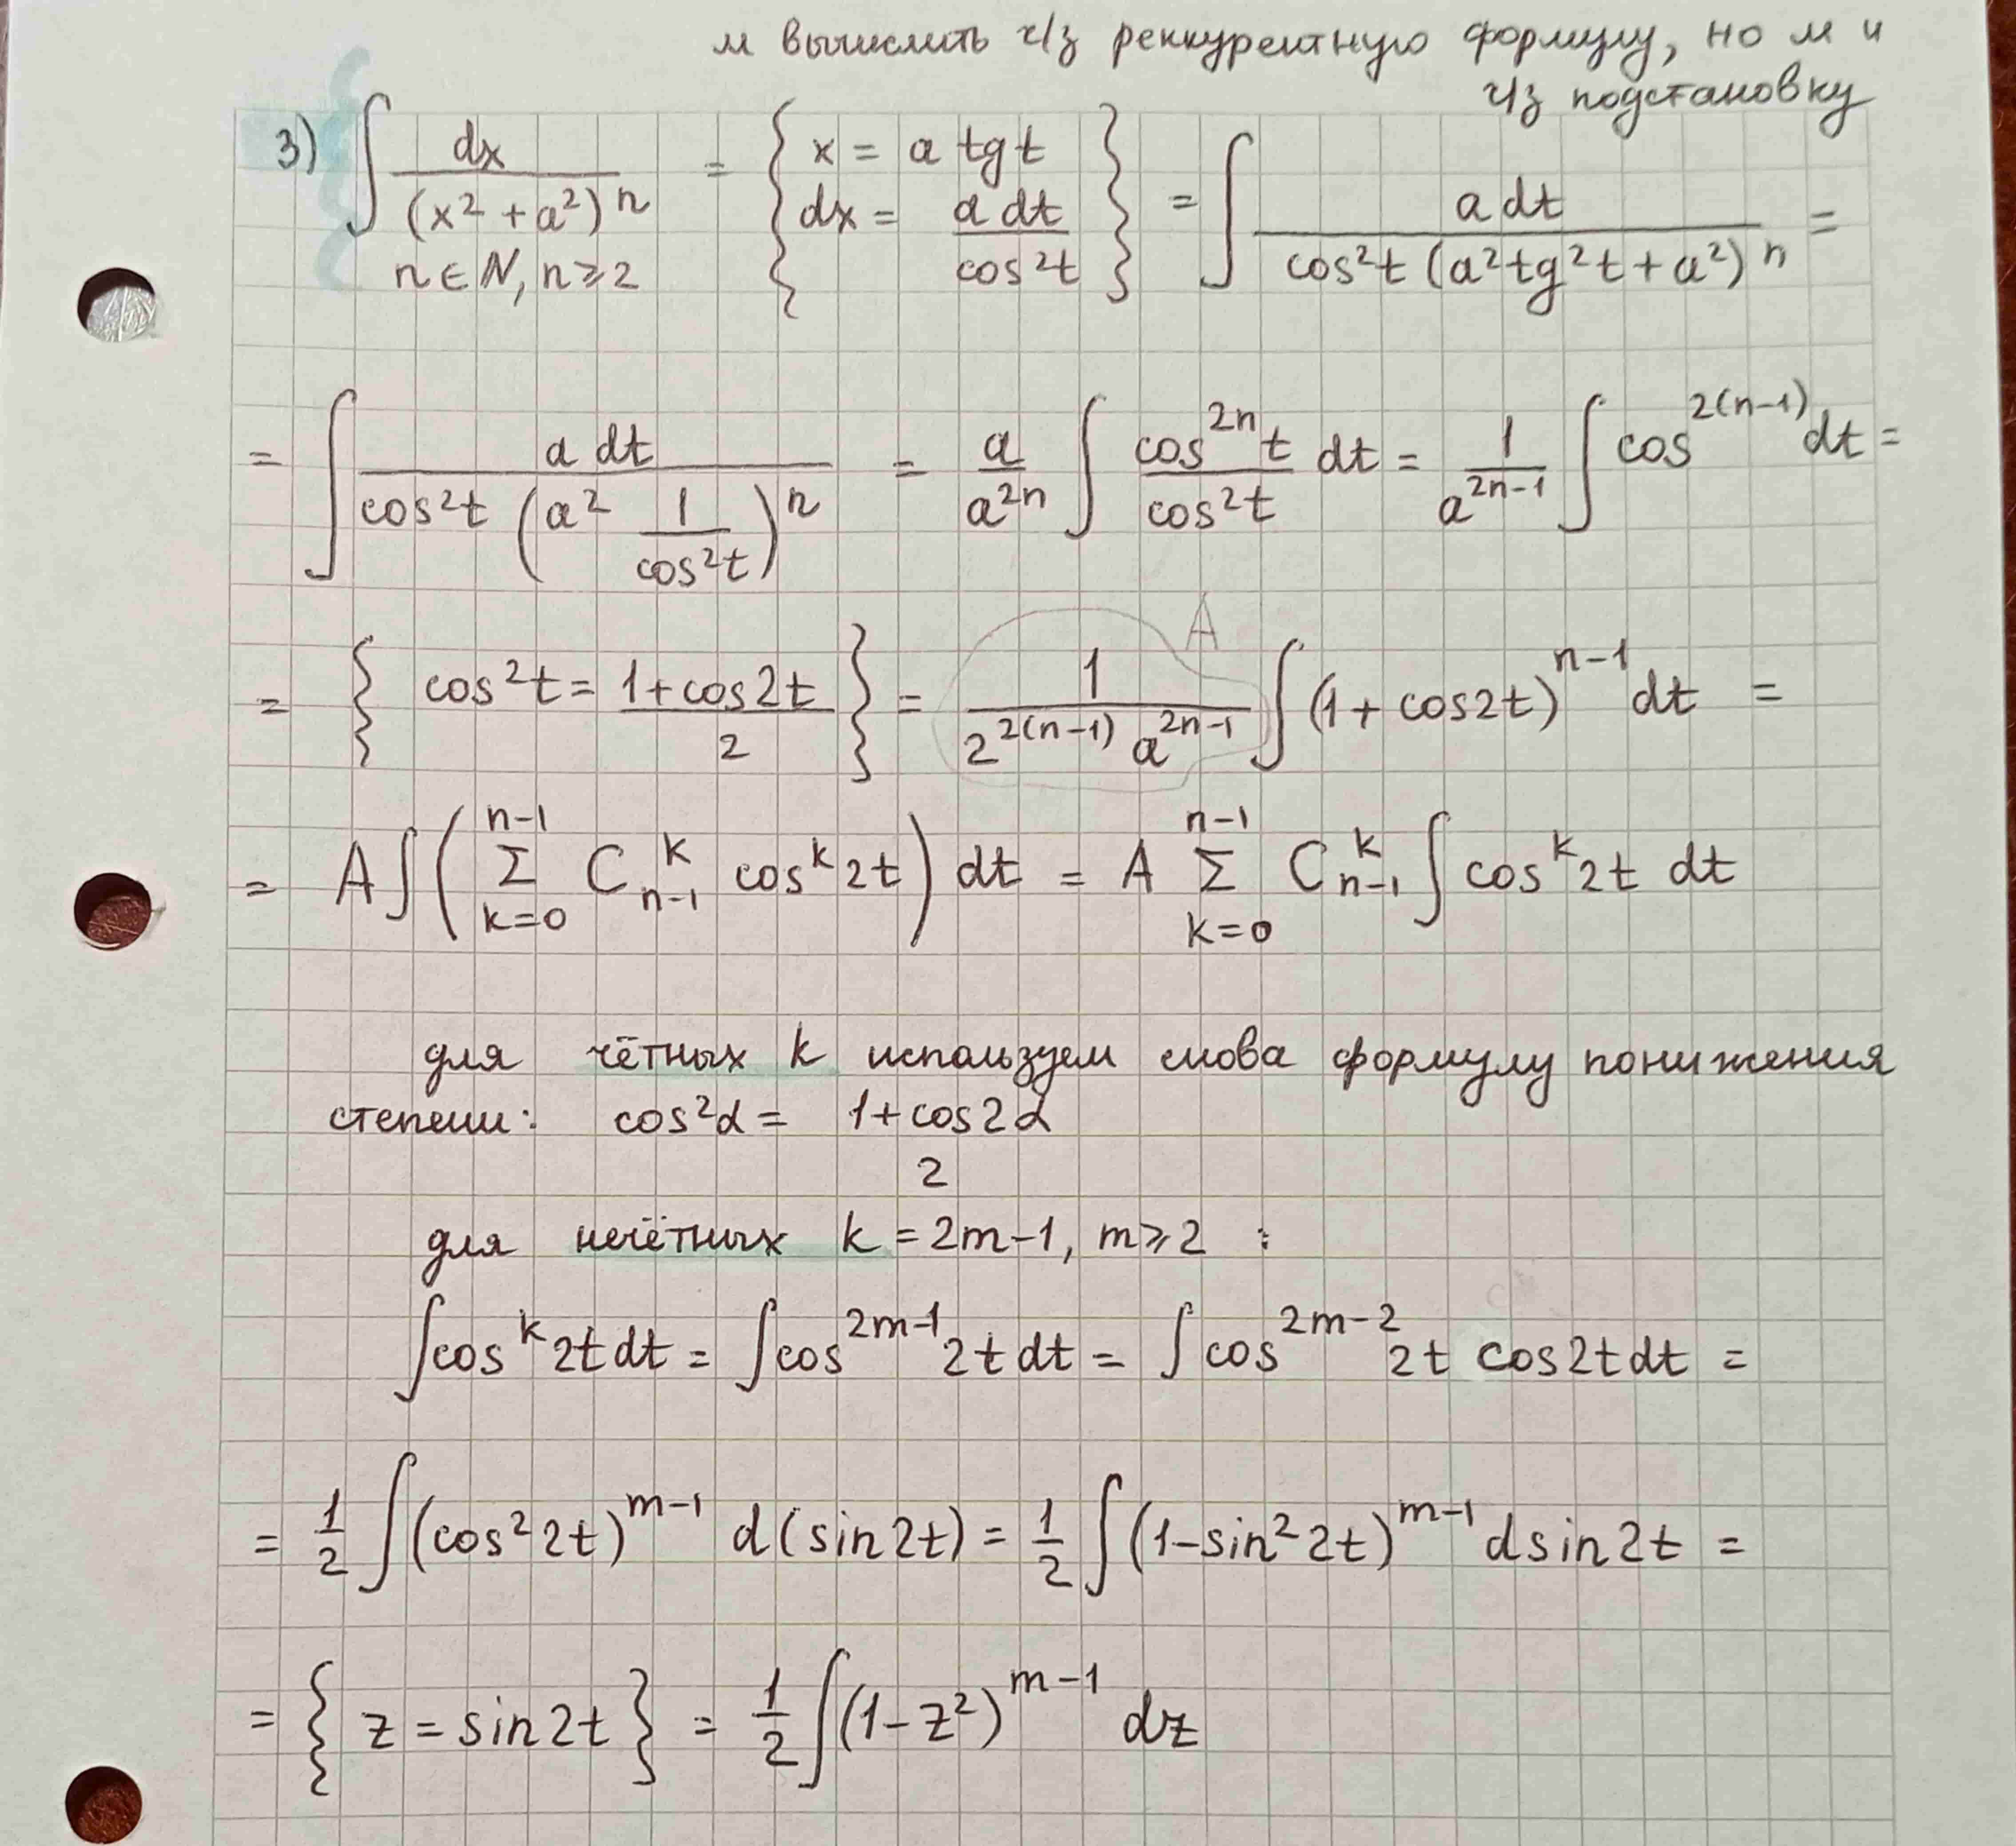 м вычислить ч/з реккурентную формулу, но м и
ч/з подстановку
3) ∫ dx / (x² + a²)ⁿ = { x = a tg t, dx = a dt / cos²t } = ∫ a dt / (cos²t (a² tg²t + a²)ⁿ) =
n ∈ N, n ⩾ 2
= ∫ a dt / (cos²t (a² 1/cos²t)ⁿ) = a/a²ⁿ ∫ cos²ⁿt / cos²t dt = 1/a²ⁿ⁻¹ ∫ cos²⁽ⁿ⁻¹⁾ dt =
= { cos²t = (1 + cos2t)/2 } = 1 / (2²⁽ⁿ⁻¹⁾ a²ⁿ⁻¹) ∫ (1 + cos2t)ⁿ⁻¹ dt =
A
= A ∫ ( Σ_{k=0}^{n-1} C_{n-1}^{k} cosᵏ2t ) dt = A Σ_{k=0}^{n-1} C_{n-1}^{k} ∫ cosᵏ2t dt
для чётных k используем снова формулу понижения
степени: cos²α = 1 + cos2α
2
для нечётных k = 2m-1, m ⩾ 2 :
∫ cosᵏ2t dt = ∫ cos²ᵐ⁻¹2t dt = ∫ cos²ᵐ⁻²2t cos2t dt =
= 1/2 ∫ (cos²2t)ᵐ⁻¹ d(sin2t) = 1/2 ∫ (1-sin²2t)ᵐ⁻¹ dsin2t =
= { z = sin2t } = 1/2 ∫ (1-z²)ᵐ⁻¹ dz